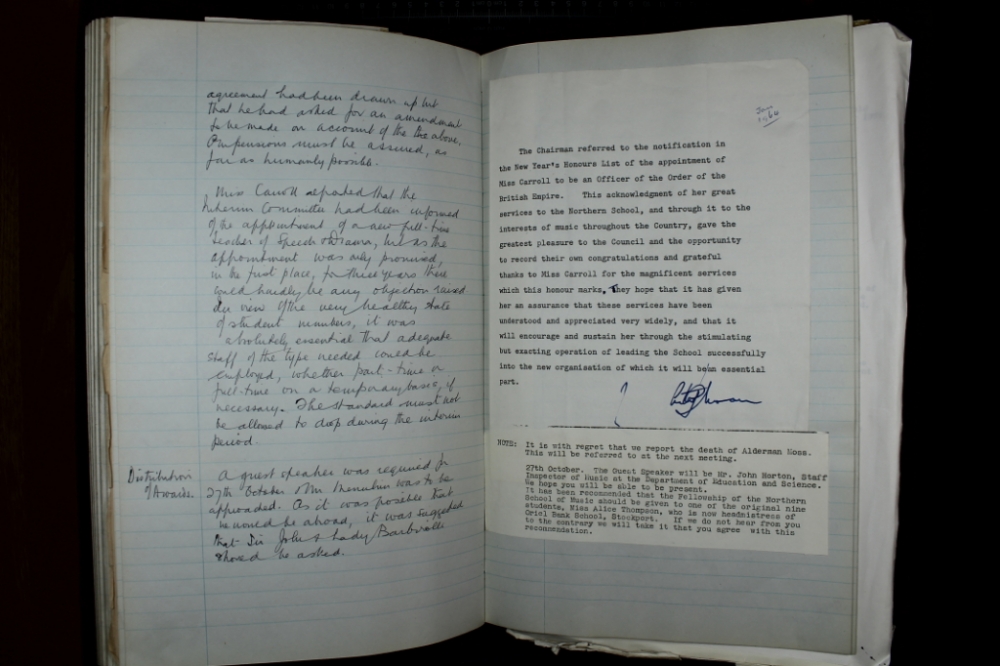 agreement had been drawn up but
that he had asked for an amendment
to be made on account of the above.
Pensions must be assured, as
far as humanly possible.
Miss Carroll reported that the
Interim Committee had been informed
of the appointment of a new full-time
teacher of Speech & Drama, but as the
appointment was only promised,
in the first place, for three years there
could hardly be any objection raised.
In view of the very healthy state
of student numbers, it was
absolutely essential that adequate
staff of the type needed could be
employed, whether part-time or
full-time on a temporary basis, if
necessary. The standard must not
be allowed to drop during the interim
period.
Distribution
of Awards.
A guest speaker was required for
27th October & Mr. Menuhin was to be
approached. As it was possible that
he would be abroad, it was suggested
that Sir John & Lady Barbirolli
should be asked.
June
1966
The Chairman referred to the notification in
the New Year's Honours List of the appointment of
Miss Carroll to be an Officer of the Order of the
British Empire. This acknowledgment of her great
services to the Northern School, and through it to the
interests of music throughout the Country, gave the
greatest pleasure to the Council and the opportunity
to record their own congratulations and grateful
thanks to Miss Carroll for the magnificent services
which this honour marks. They hope that it has given
her an assurance that these services have been
understood and appreciated very widely, and that it
will encourage and sustain her through the stimulating
but exacting operation of leading the School successfully
into the new organisation of which it will be an essential
part.
NOTE: It is with regret that we report the death of Alderman Moss.
This will be referred to at the next meeting.
27th October. The Guest Speaker will be Mr. John Horton, Staff
Inspector of Music at the Department of Education and Science.
We hope you will be able to be present.
It has been recommended that the Fellowship of the Northern
School of Music should be given to one of the original nine
students, Miss Alice Thompson, who is now headmistress of
Oriel Bank School, Stockport. If we do not hear from you
to the contrary we will take it that you agree with this
recommendation.